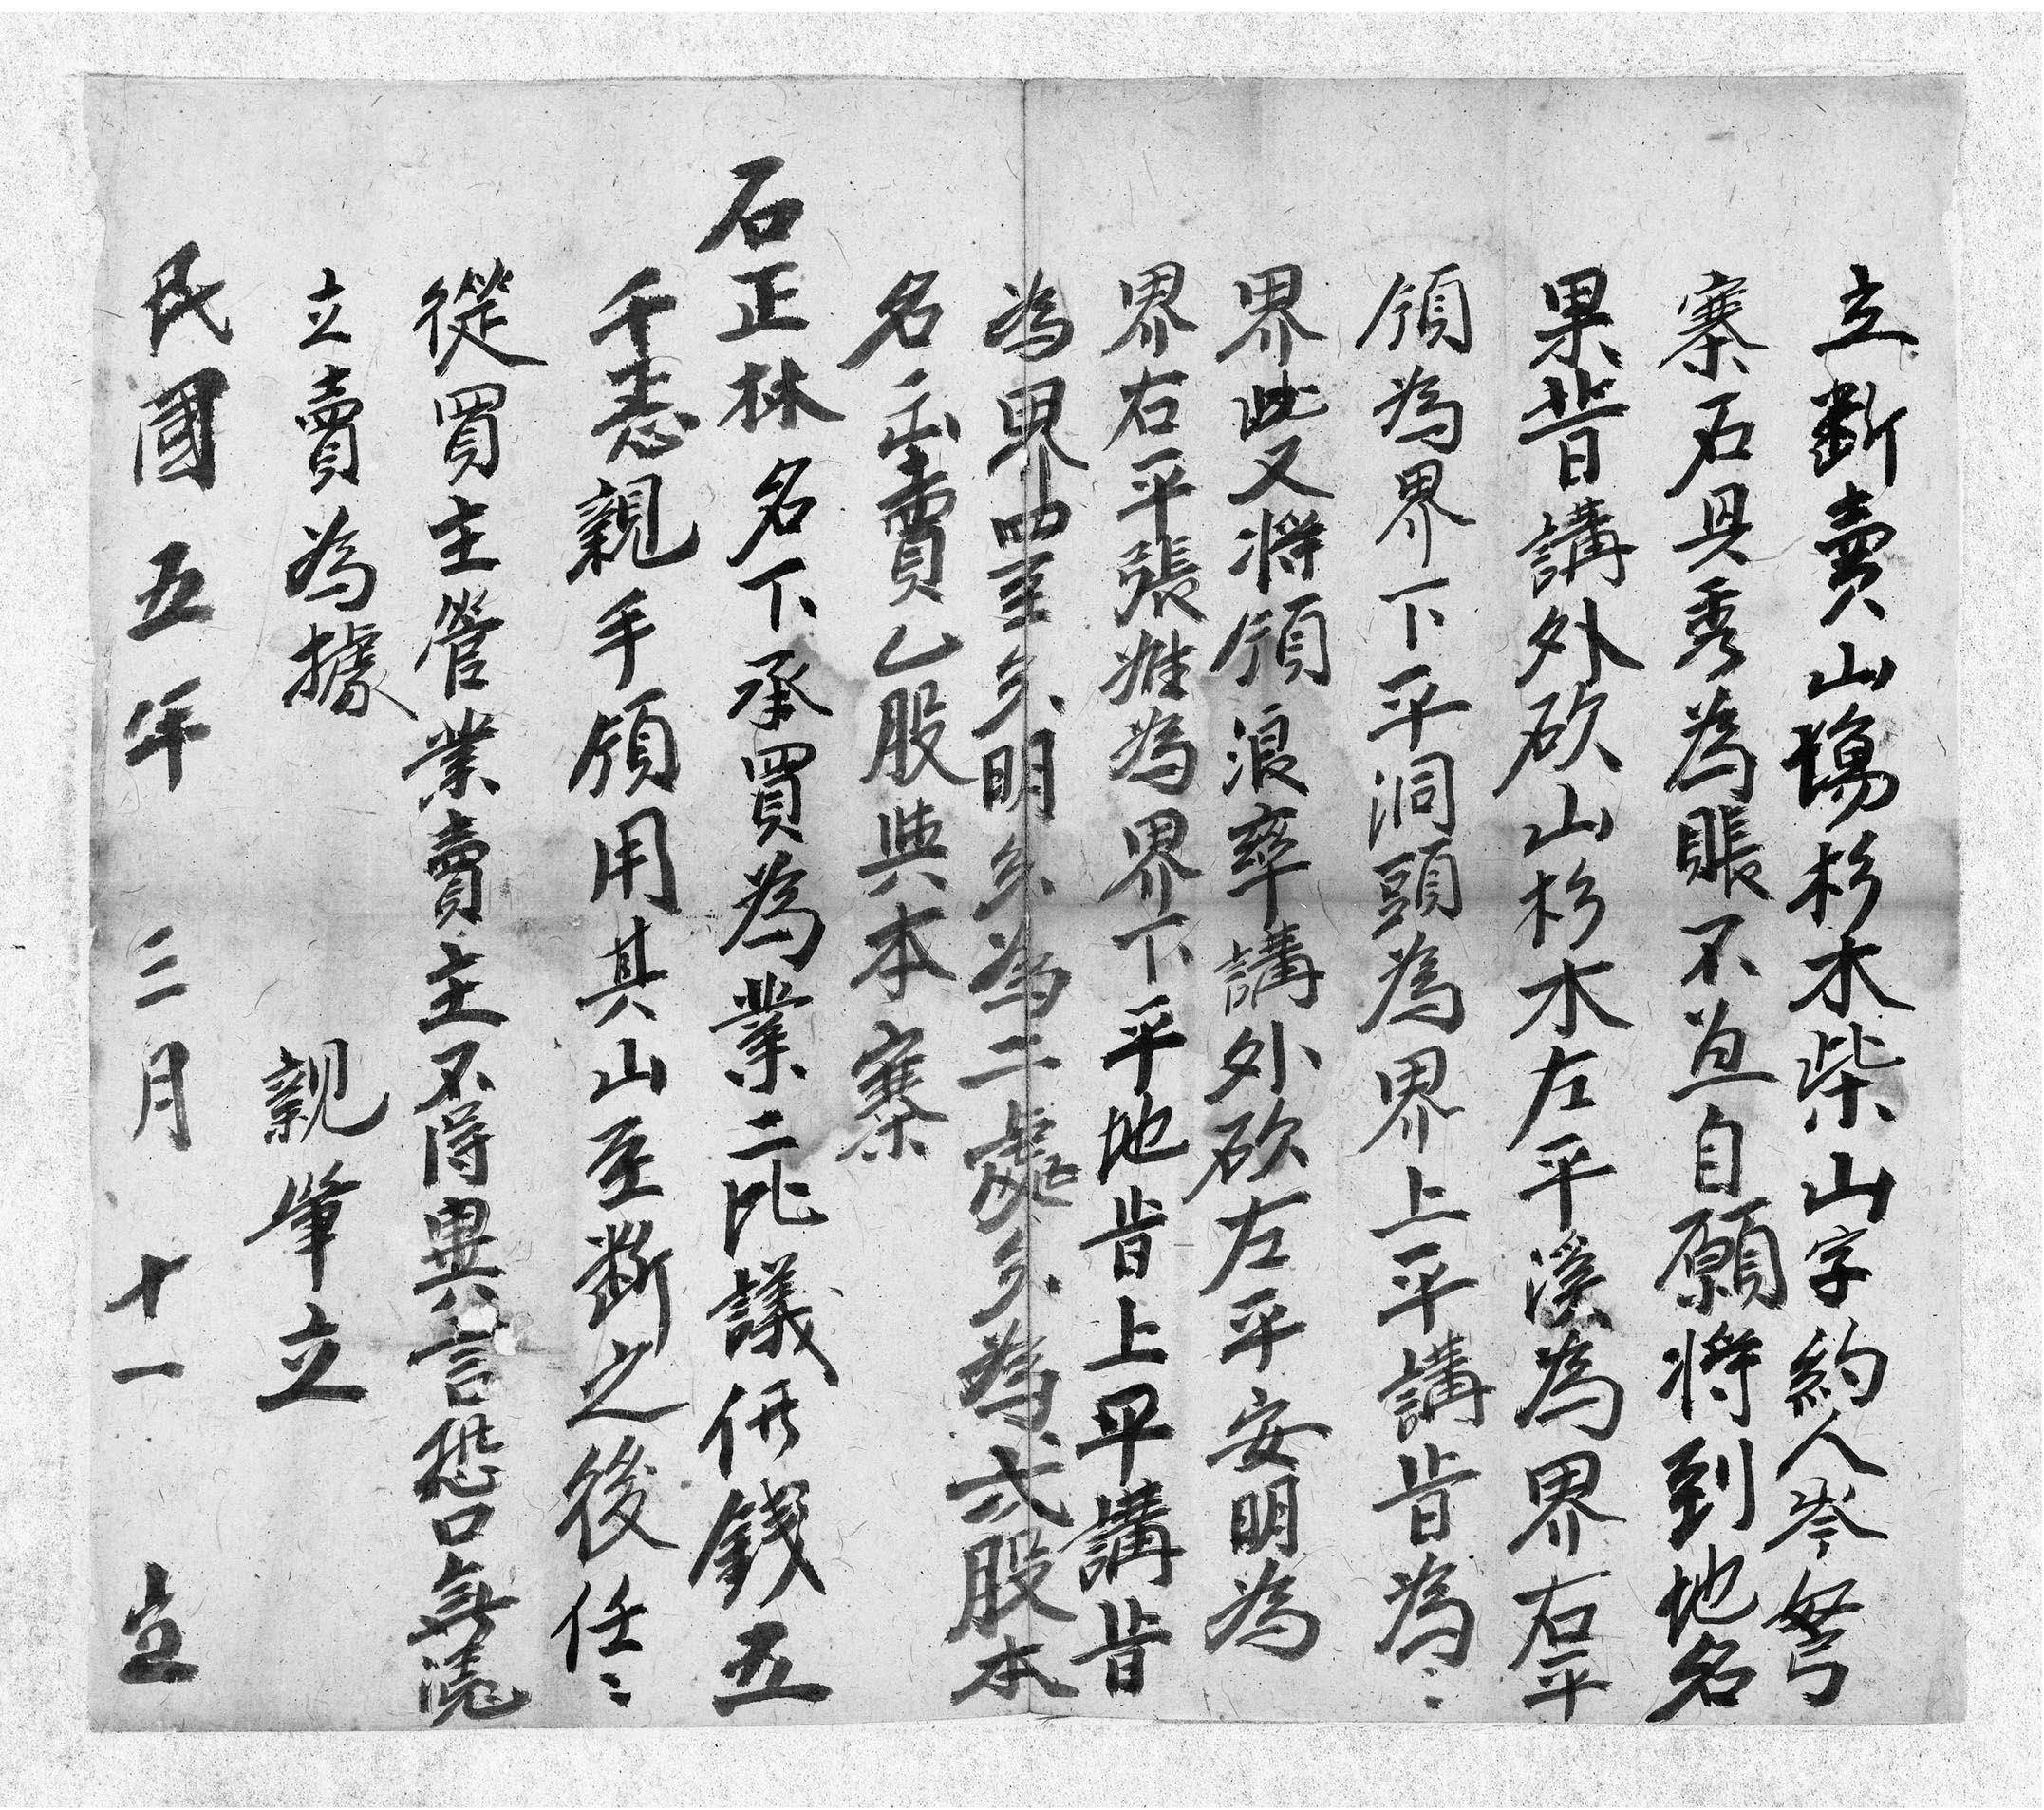 立斷賣山塲杉木柴山字約人岑努
寨石具秀為賬不直自願將到地名
果背講外砍山杉木左平溪為界右平
領為界下平洞頭為界上平講背為〻
界此又將領浪率講外砍左平安明為
界右平張為界下平地背上平講背
為界四至分明分為二處分為弍股本
名出賣乙股典本寨
石正林名下承買為業二比議價錢五
千悉親手領用其山至斷之後任〻
從買主管業賣主不得異言恐口無憑
立賣為據
親筆立
民國五年三月十一立